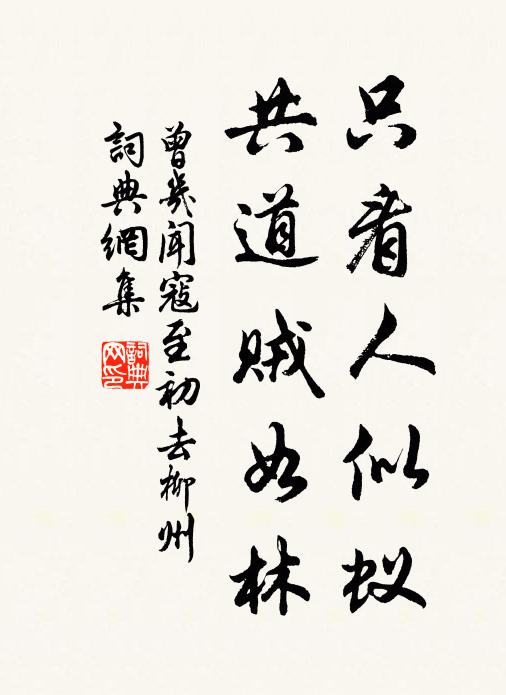 只看人似蚁
共道贼如林
曾幾闻寇至初去柳州
詞典網集
詞典网印